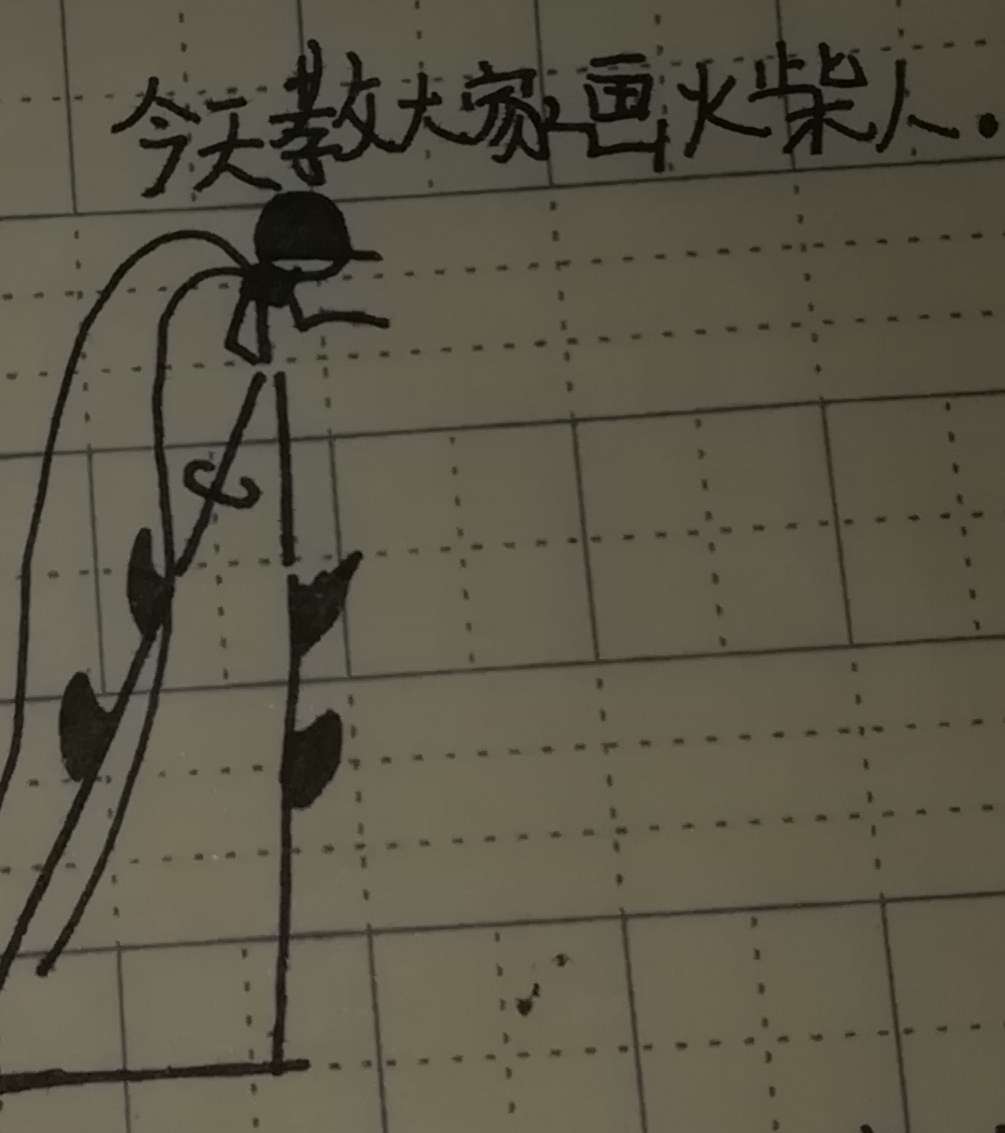 今天教大家画火柴人.